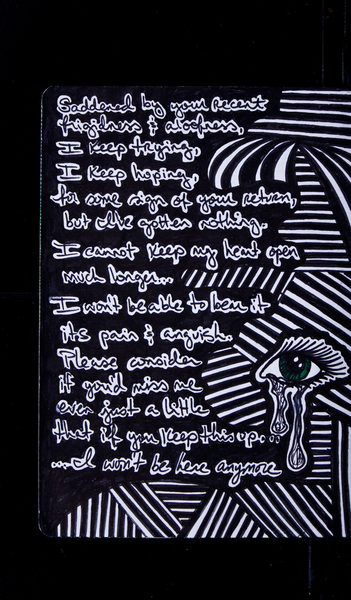 Saddened by your recent
frigidness & aloofness,
I keep trying,
I keep hoping,
for some sign of your return,
but I've gotten nothing.
I cannot keep my heart open
much longer...
I won't be able to bear it
its pain & anguish.
Please consider
if you'd miss me
even just a little
that if you keep this up...
...I won't be here anymore